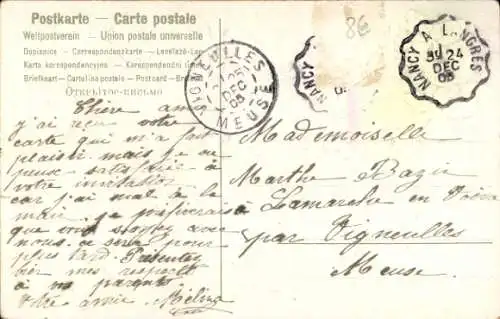 Postkarte – Carte postale
Weltpostverein – Union postale universelle
Dopisnice – Correspondenzkarte – Levelező-Lap
Karta korespondencyjna – Korespondenční lístek
Briefkart – Cartolina postale – Postcard – Br
Открытое-письмо
86
VIGNEULLES
25
DEC
05
MEUSE
NANCY
NANCY A LANGRES
24
DEC
05
Chère amie
j'ai reçu votre
carte qui m'a fait
plaisir mais je ne
peux satisfaire à
votre invitation
car j'ai mal à la
main je préfèrerais
que vous
nous ce sera pour
plus tard. Présentez
bien mes respects
à vos parents
Votre amie Mélina
Mademoiselle
Marthe Bazin
à Lamarche en Woëvre
par Vigneulles
Meuse